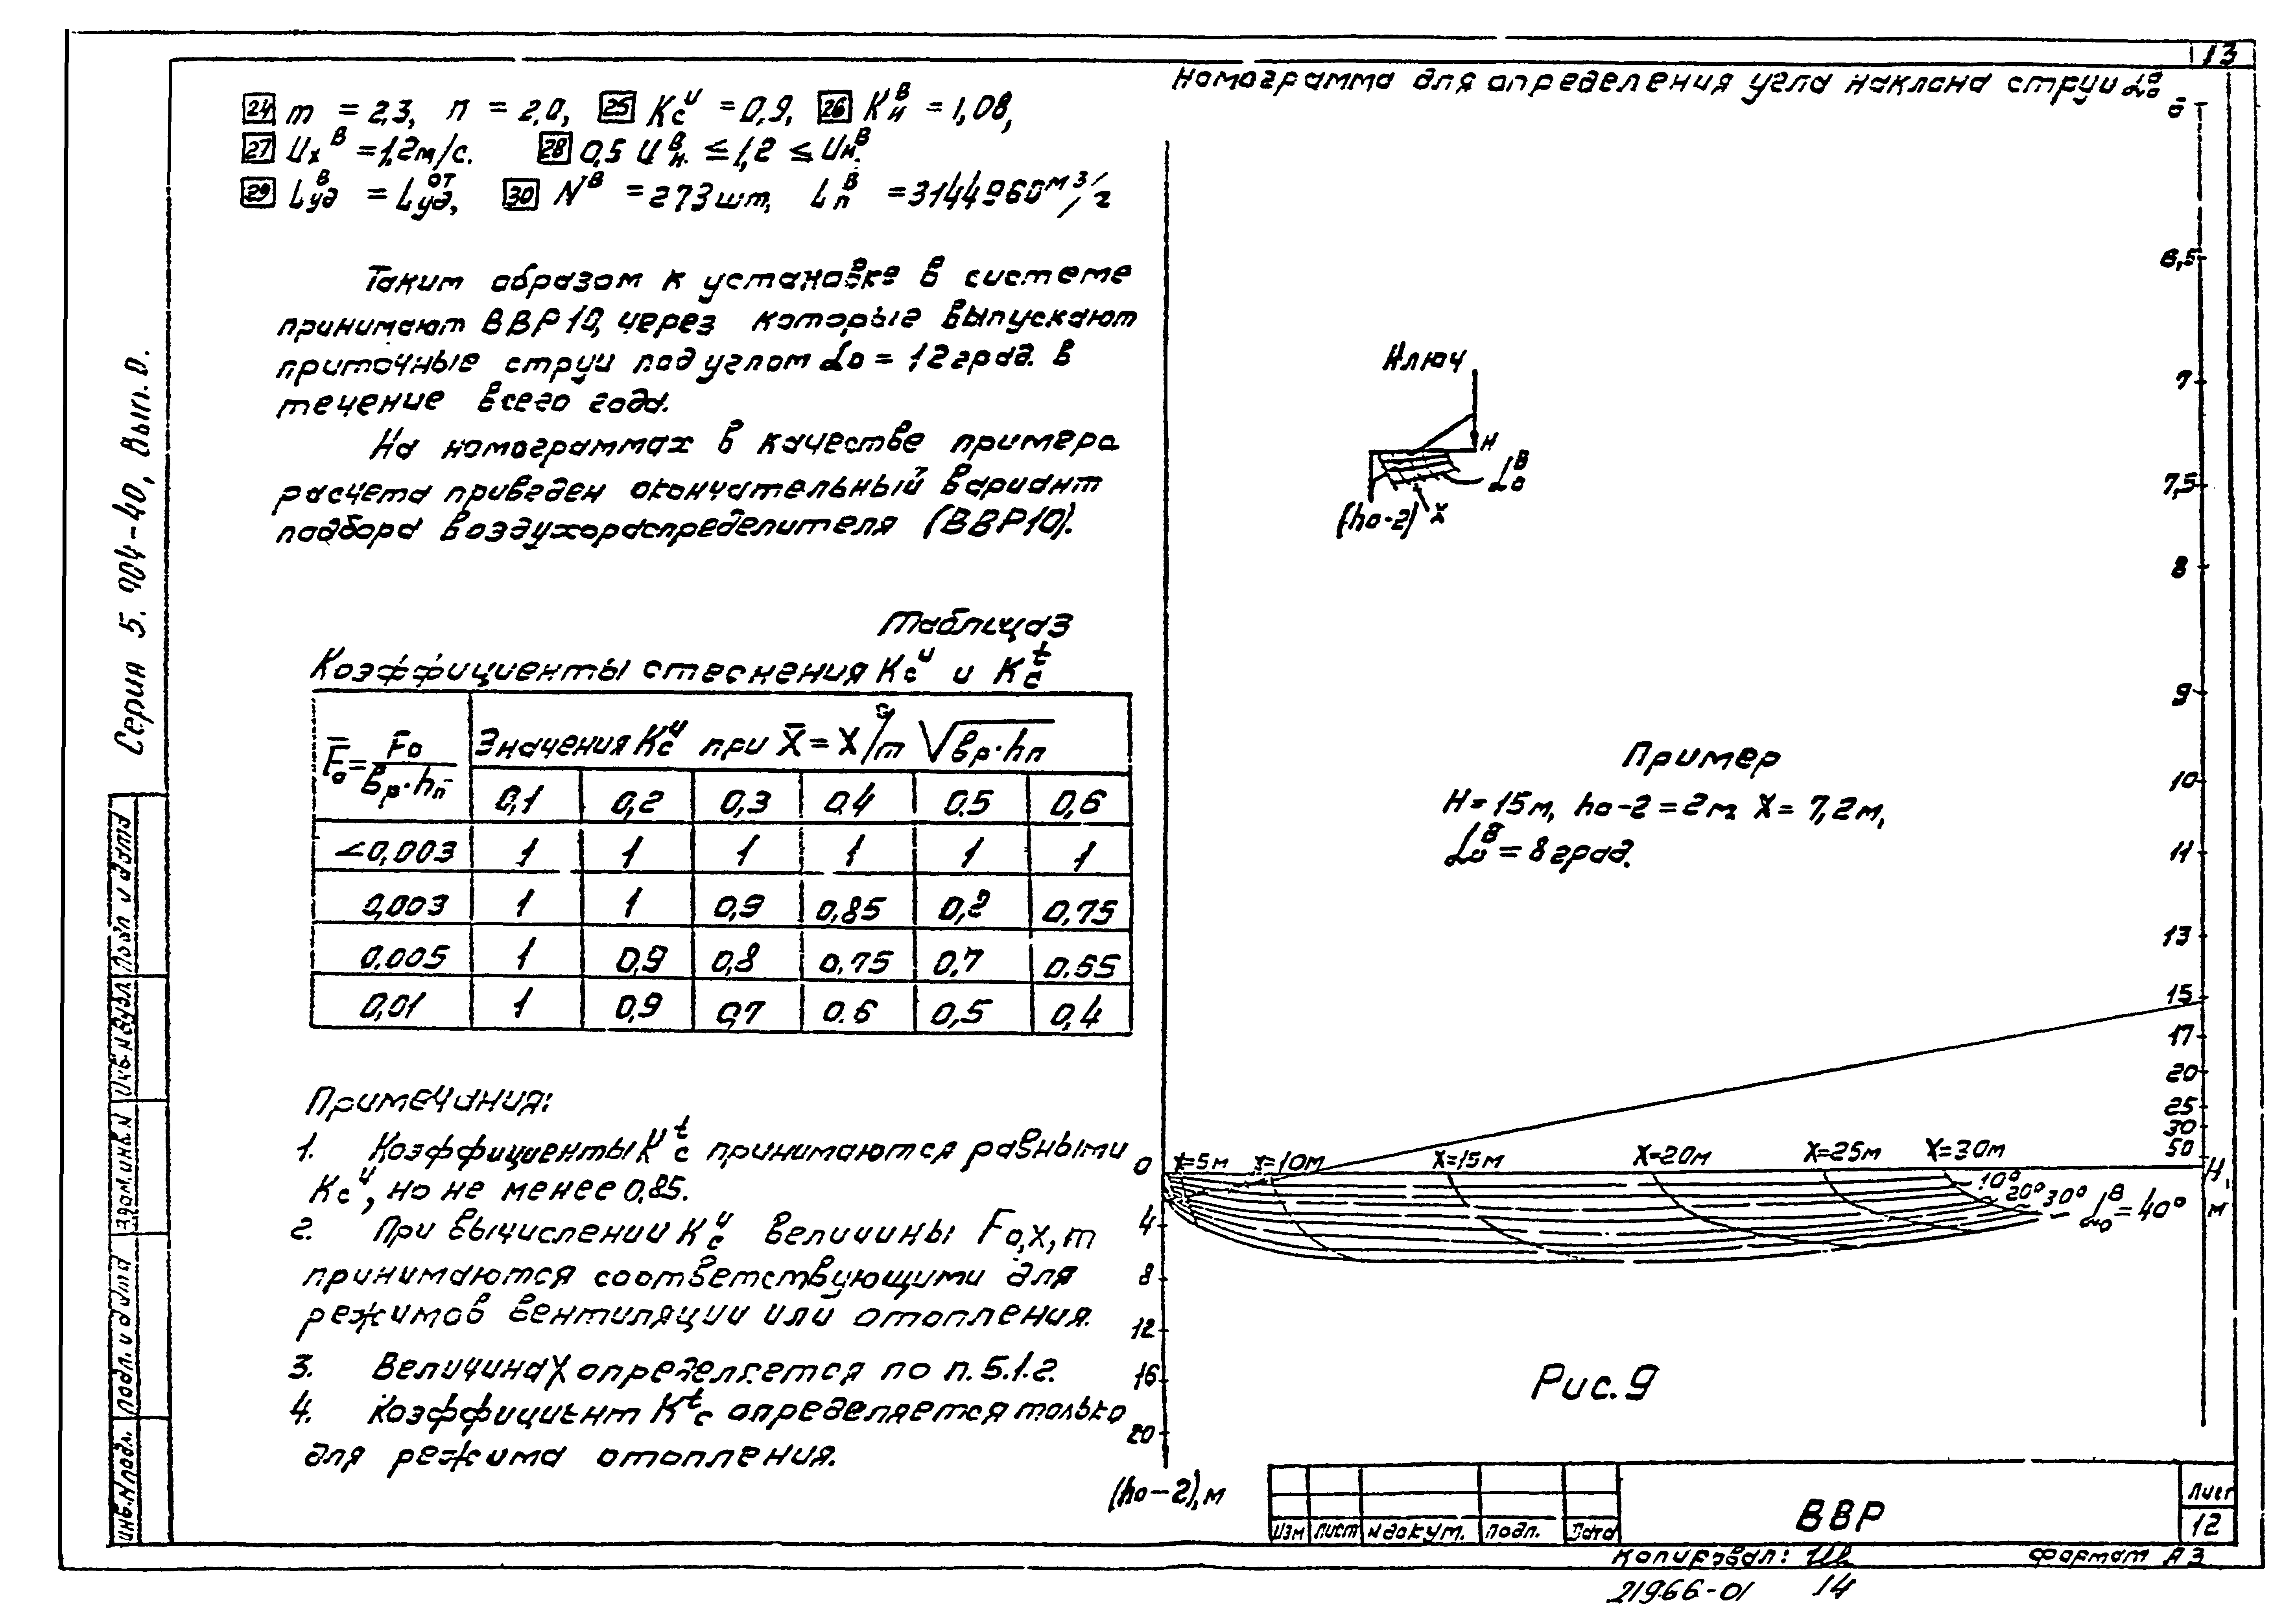 13
24 m = 2,3, n = 2,0, 25 Kcᵘ = 0,9, 26 Kиᴮ = 1,08,
27 Uxᴮ = 1,2м/с. 28 0,5 Uн.ᴮ ≤ 1,2 ≤ Uн.ᴮ
29 Lудᴮ = Lудᵒᵀ, 30 Nᴮ = 273шт, Lпᴮ = 3144960м³/г
Таким образом к установке в системе
принимают ВВР10, через которые выпускают
приточные струи под углом αo = 12град. в
течение всего года.
На номограммах в качестве примера
расчета приведен окончательный вариант
подбора воздухораспределителя (ВВР10).
Таблица 3
Коэффициенты стеснения Kcᵘ и Kcᵗ
F̄o = Fo / вр·hп
Значения Kcᵘ при X̄ = X/m √вр·hп
0,1 0,2 0,3 0,4 0.5 0,6
<0,003 1 1 1 1 1 1
0,003 1 1 0,9 0,85 0,2 0,75
0.005 1 0,9 0,8 0,75 0,7 0.65
0,01 1 0,9 0,7 0.6 0,5 0,4
Примечания:
1. Коэффициенты Kcᵗ принимаются равными
Kcᵘ, но не менее 0,85.
2. При вычислении Kcᵘ величины Fo,x,m
принимаются соответствующими для
режимов вентиляции или отопления.
3. Величина X определяется по п.5.1.г.
4. Коэффициент Kᵗc определяется только
для режима отопления.
Номограмма для определения угла наклона струи αoᴮ
6
6,5
7
7,5
8
9
10
11
13
15
17
20
25
30
50
H,
м
Ключ
H
αoᴮ
(ho-2) X
Пример
H = 15м, ho-2 = 2м X = 7,2м,
αoᴮ = 8град.
X=5м X=10м X=15м X=20м X=25м X=30м
10° 20° 30° αoᴮ=40°
0
4
8
12
16
20
(ho-2),м
Рис. 9
Изм Лист N докум. Подп. Дата
ВВР
Лист
12
Копировал:
Формат А3
21966-01 14
Серия 5.904-40, Вып. 0.
Подп и дата
Инв. N дубл.
Взам. инв. N
Подп. и дата
Инв. N подл.